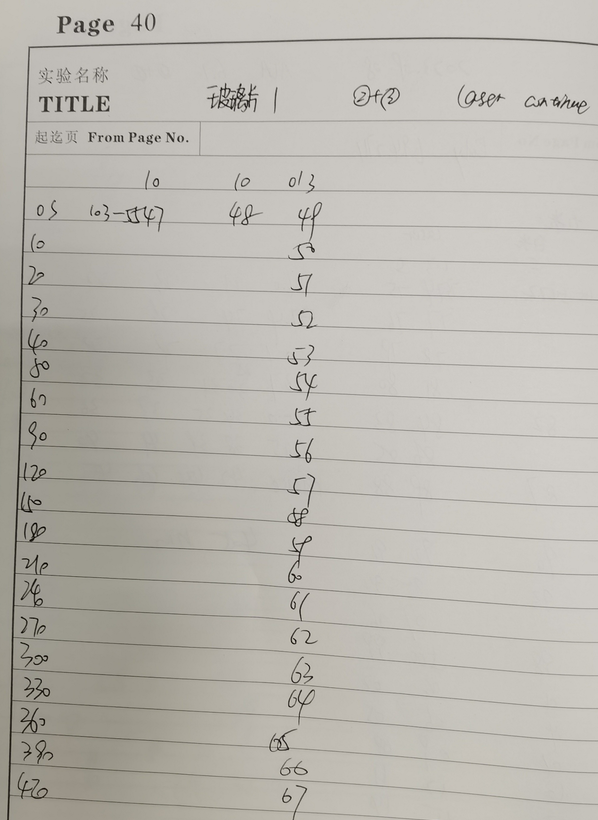 Page 40
实验名称
TITLE 玻璃片 1 ②+② Laser continue
起迄页 From Page No.
10 10 013
0S 103-5547 48 49
10 50
20 51
30 52
40 53
50 54
60 55
90 56
120 57
150 58
180 59
210 60
240 61
270 62
300 63
330 64
360 65
390 66
420 67